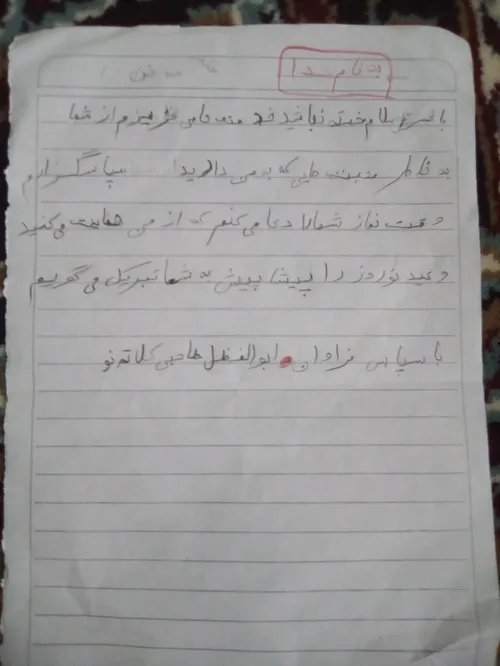 به نام خدا
با عرض سلام خسته نباشید خدمت حامی عزیزم از شما
به خاطر محبت هایی که به من دارید سپاسگزارم
وقت نماز شما را دعا می کنم که از من حمایت می کنید
و عید نوروز را پیشاپیش به شما تبریک می گویم
با سپاس فراوان ابوالفضل حاجی کلاته نو